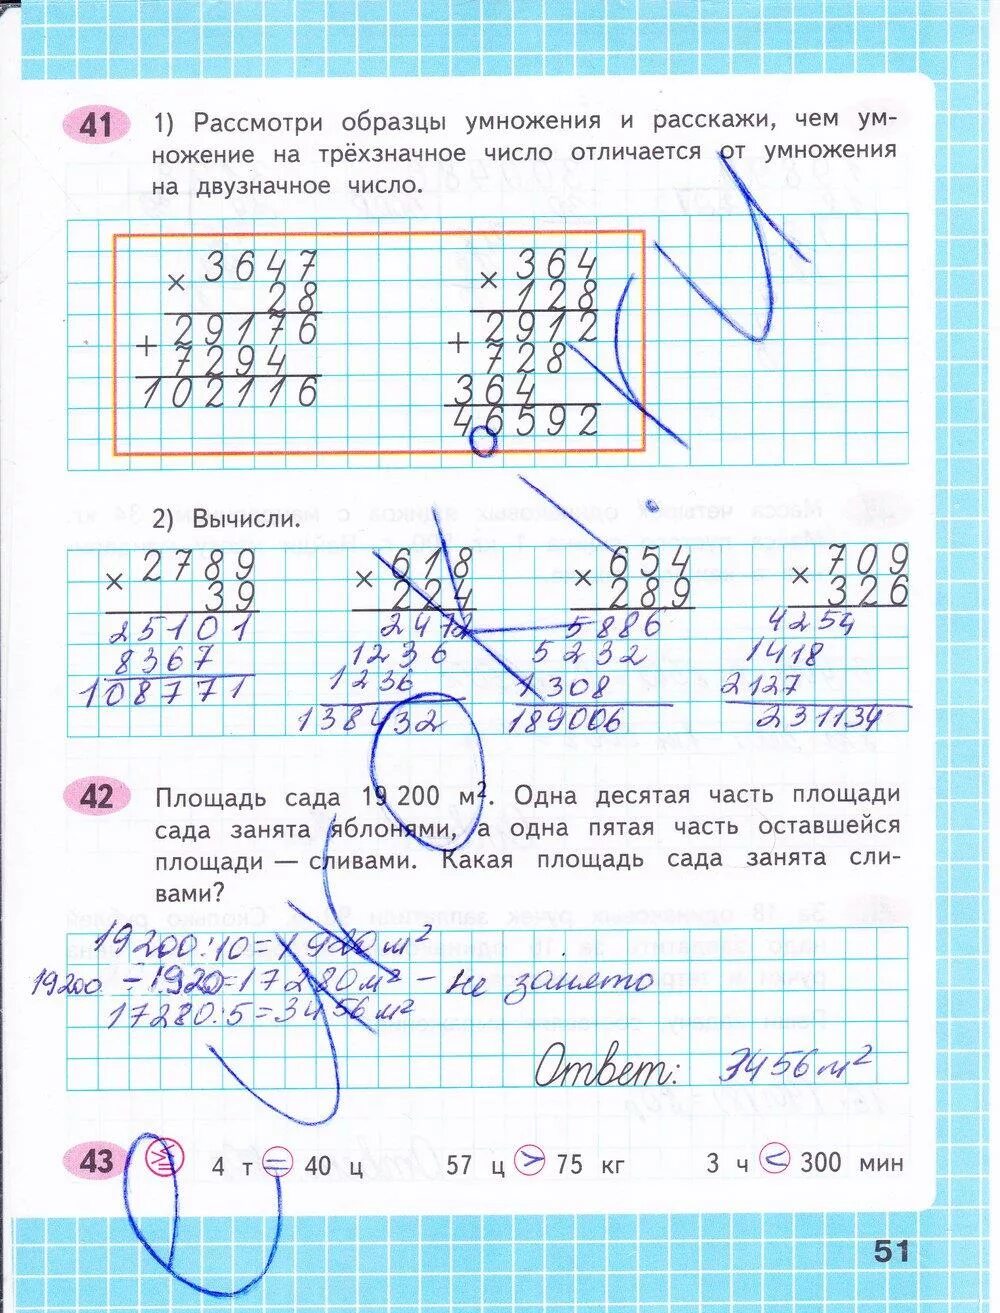 41 1) Рассмотри образцы умножения и расскажи, чем ум-
ножение на трёхзначное число отличается от умножения
на двузначное число.
× 3647
28
+ 29176
7294
102116
× 364
128
+ 2912
728
364
46592
2) Вычисли.
× 2789
39
25101
8367
108771
× 618
224
2472
1236
1236
138432
× 654
289
5886
5232
1308
189006
× 709
326
4254
1418
2127
231134
42 Площадь сада 19 200 м². Одна десятая часть площади
сада занята яблонями, а одна пятая часть оставшейся
площади — сливами. Какая площадь сада занята сли-
вами?
19200:10=1920 м²
19200 - 1920=17280 м² - не занято
17280:5=3456 м²
Ответ: 3456 м²
43 4 т = 40 ц 57 ц > 75 кг 3 ч < 300 мин
51